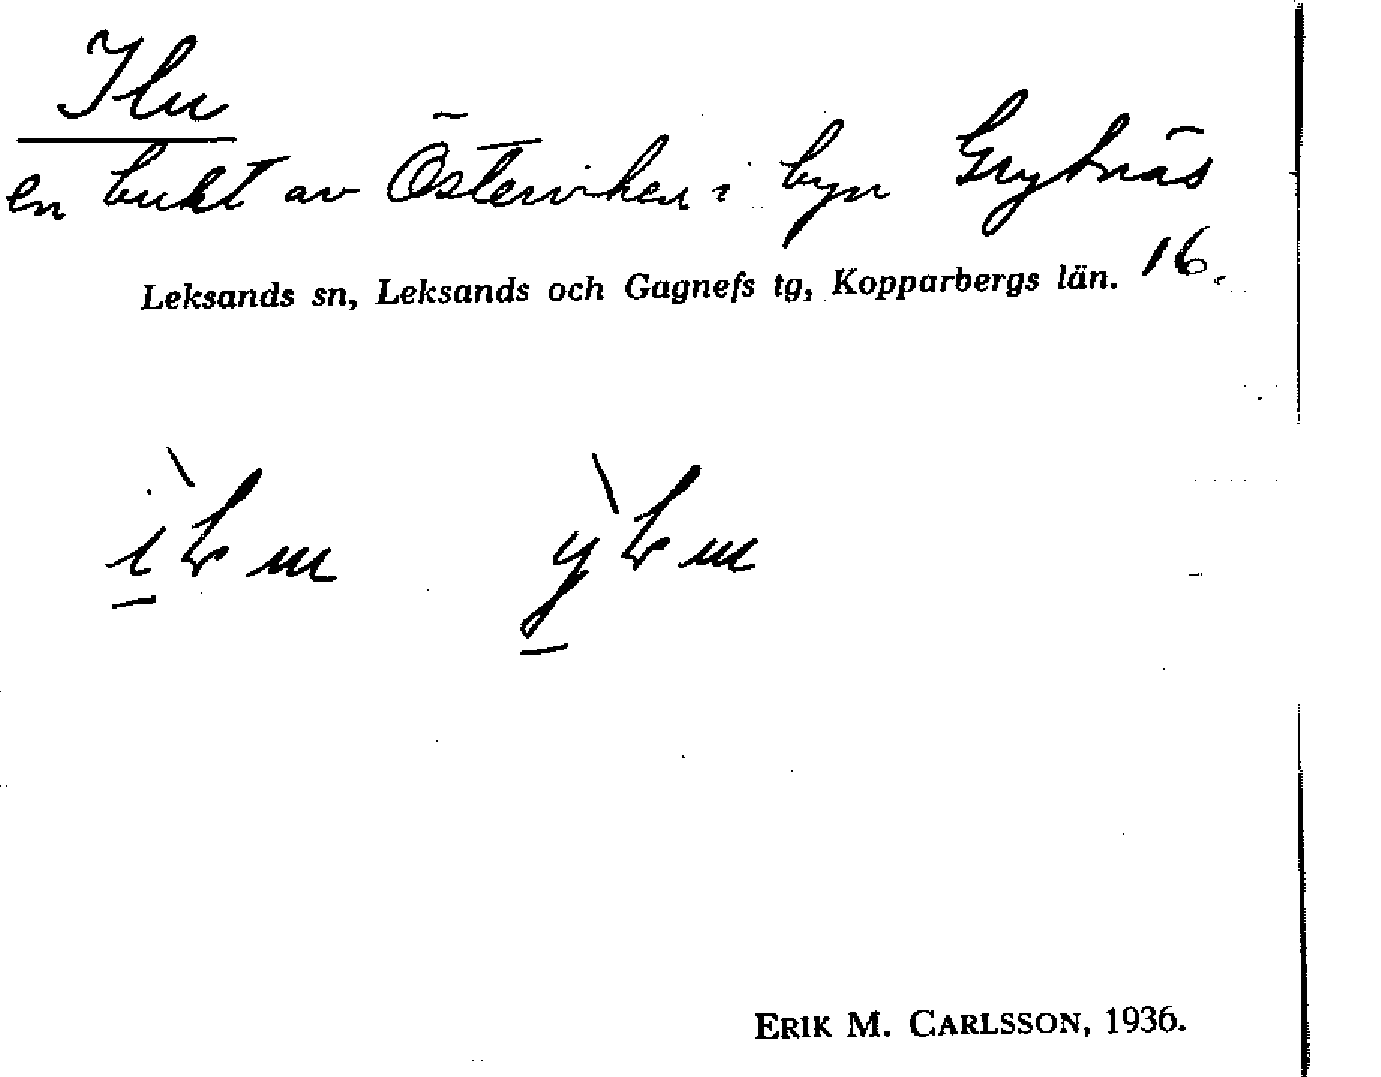 Ilu
en bukt av Österviken i byn Grytnäs
Leksands sn, Leksands och Gagnefs tg, Kopparbergs län. 16.
ERIK M. CARLSSON, 1936.